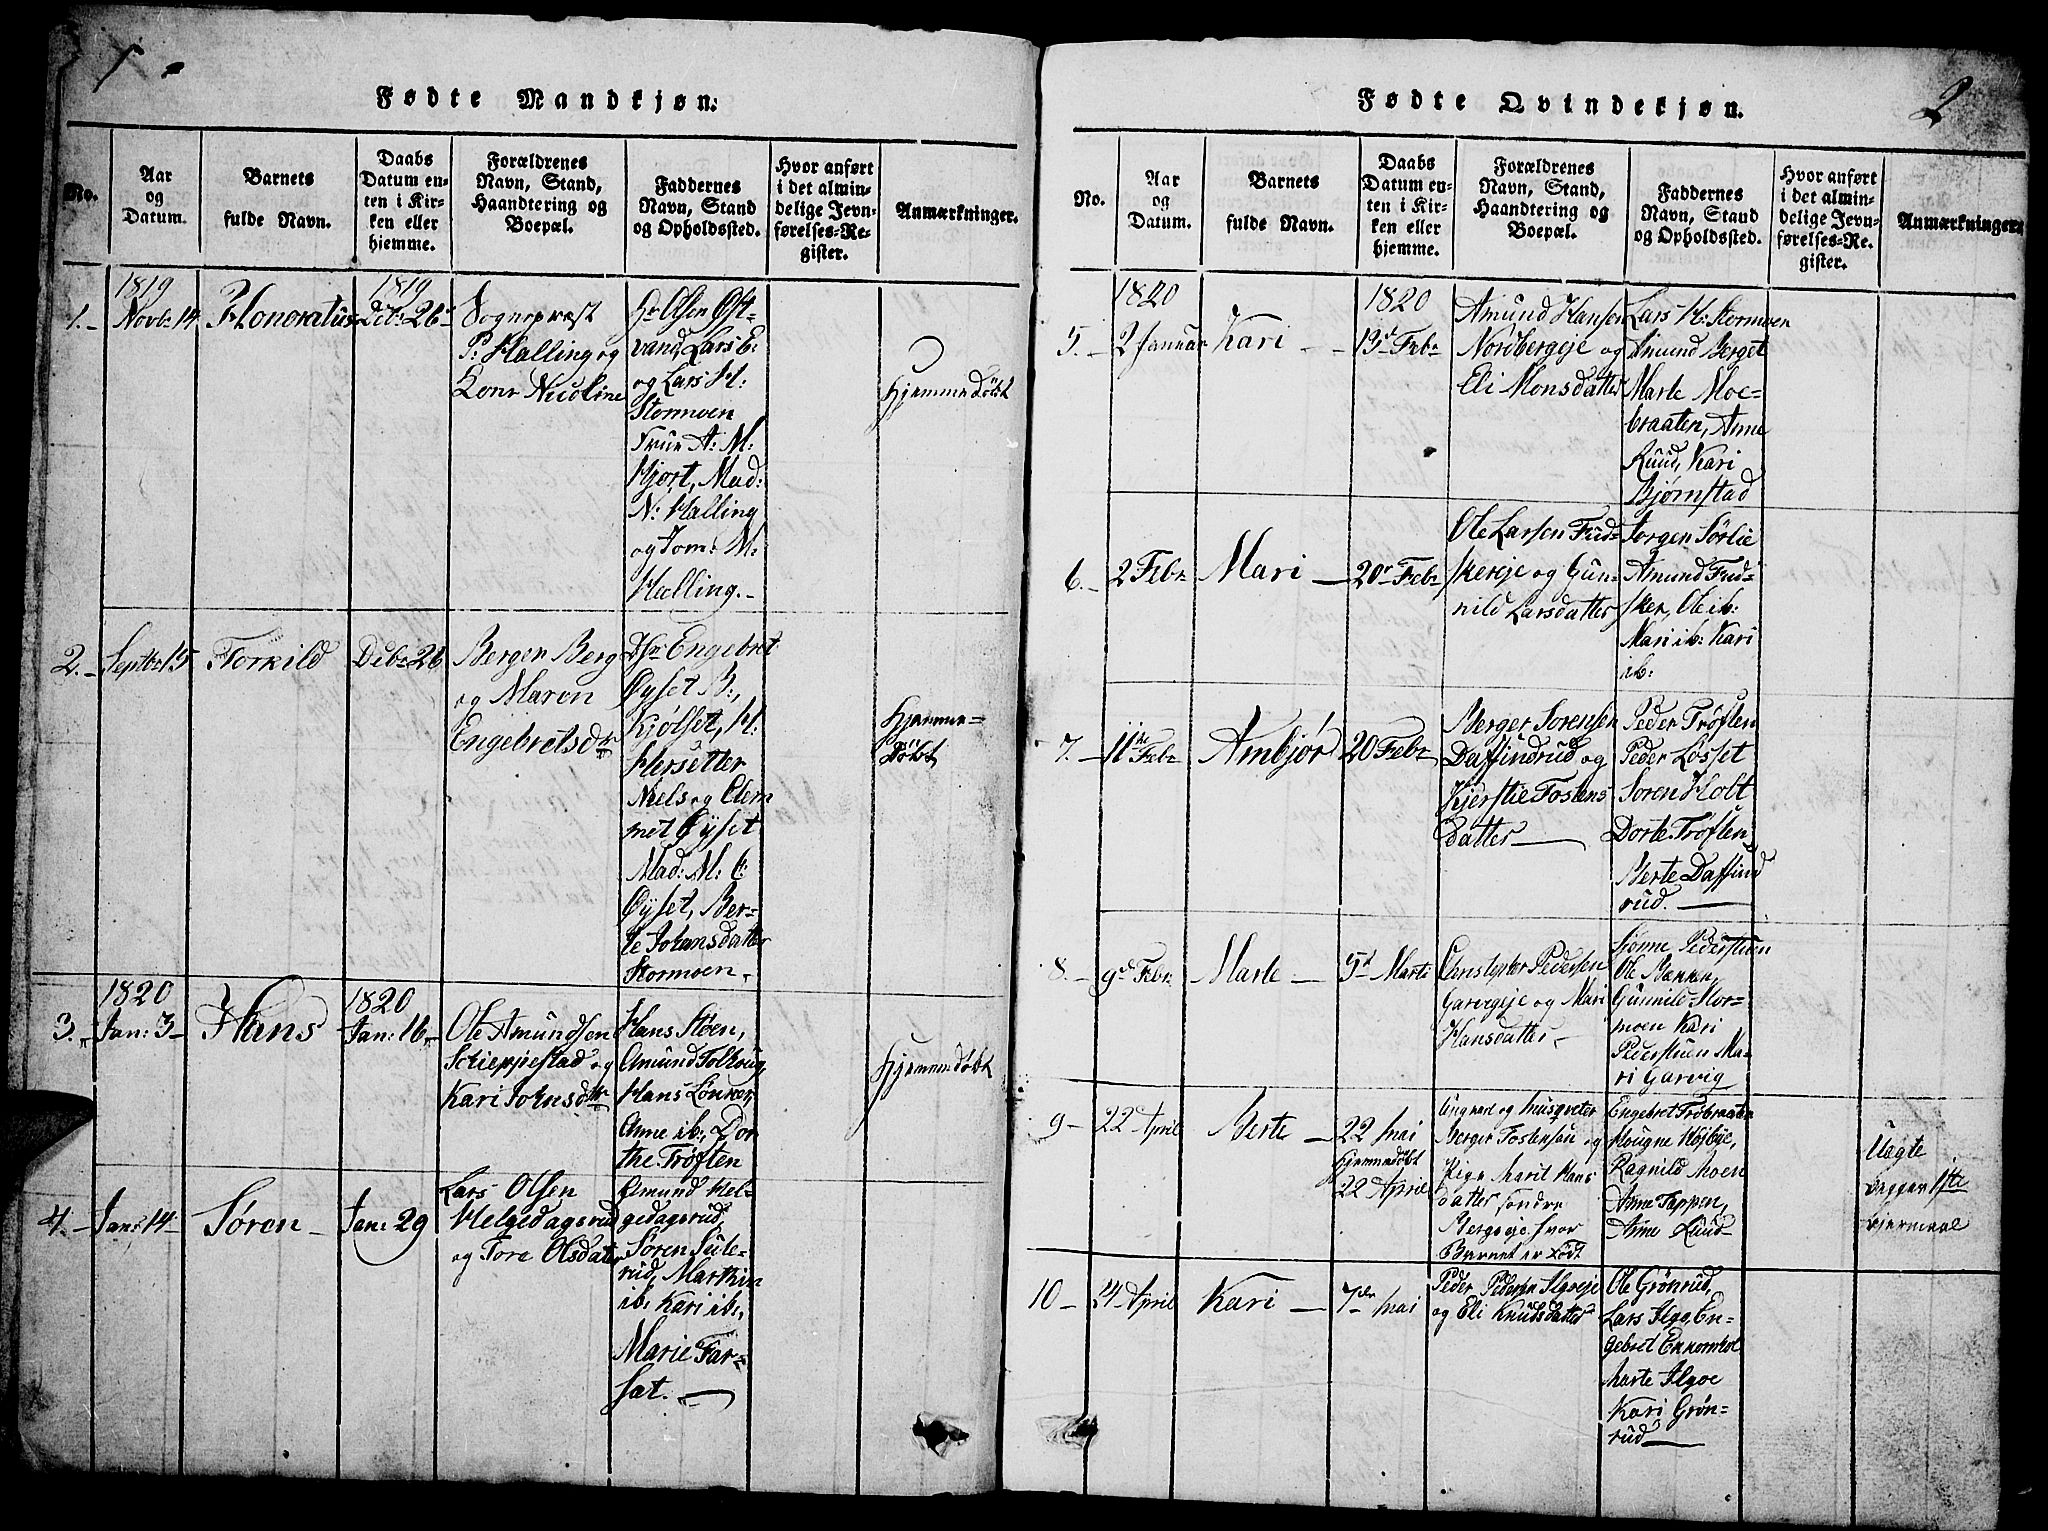 1
Fødte Mandkjøn.
No.
Aar og Datum.
Barnets fulde Navn.
Daabs Datum enten i Kirken eller hjemme.
Forældrenes Navn, Stand, Haandtering og Boepæl.
Faddernes Navn, Stand og Opholdssted.
Hvor anført i det almindelige Jevnførelses-Register.
Anmærkninger.
1.
1819
Novbr 14
Honoratus
1819
Debr 26
Sognepræst
P: Halling og
Lone Nicoline
Hr Olsen Øst-
vand, Lars E:
og Lars H:
Stormoen
Frue A: M:
Hjort, Mad:
N: Halling
og Jom: M:
Halling.-
Hjemmedöbt
2.
Septbr 15
Torkild
Debr 26
Berger Berg
og Maren
Engebretsdtr
Hr Engebret
Øyset B:,
Kjølset, H:
Hersetter
Niels og Clem
met Øyset
Mad: M: C:
Øyset, Ber-
te Johansdatter
Stormoen.
Hjemme-
döbt
3.
1820
Jan: 3
Hans
1820
Jan: 16
Ole Amundsen
Schieppestad og
Kari Johnsdtr
Hans Støen,
Amund Tolhoug
Hans Lönver
Anne ib:, Dor
the Trøften
Hjemmedöbt
4.
Jan: 14
Søren
Jan: 29
Lars Olsen
Helgedagsrud
og Tore Olsdater
Emund Hel-
gedagsrud,
Søren Sule-
rud, Marthin
ib: Kari ib:,
Marie Far-
sat.
2
Fødte Qvindekjøn.
No.
Aar og Datum.
Barnets fulde Navn.
Daabs Datum enten i Kirken eller hjemme.
Forældrenes Navn, Stand, Haandtering og Boepæl.
Faddernes Navn, Stand og Opholdssted.
Hvor anført i det almindelige Jevnførelses-Register.
Anmærkninger.
5.
1820
2 Januar
Kari
1820
13d Febr
Amund Hansen
Nordbergeje og
Eli Monsdatter
Lars H: Stormoen
Amund Berget
Marte Moe-
braaten, Anne
Ruud, Kari
Bjørnstad
6.
2 Febr
Mari
20r Febr
Ole Larsen Fud-
skereje og Gun-
nild Larsdatter
Jorgen Sørlie
Amund Fud-
sker, Ole ib:
Mari ib: Kari
ib:
7.
11te Febr
Ambjør
20 Febr
Berger Sorensen
Daffindrud og
Kjerstie Fostens
datter
Peder Trøften
Peder Losset
Soren Holt
Dorte Trøften
Berte Daffind
rud.
8.
9d Febr
Marte
5d Marti
Christopher Pedersen
Garvigeje og Mari
Hansdatter
Sjønne Pederstuen
Ole Bakken
Gunnild Stor-
moen Kari
Pederstuen Ma-
ri Garvig
9
22 April
Berte
22 Mai
hjemmedöbt
22 April
Ungkarl og Husgreter
Berger Fostensøn og
Pige Marit Hans
datter søndre
Bergseje hvor
Barnet er födt
Engebret Tröbraaten
Hougne Höjbye,
Ragnild Moen
Anne Tappen,
Anne Ruud
Uægte
begges 1ste
Lejermaal
10
24 April
Kari
7de Mai
Peder Pedersen Ilgoeje
og Eli Knudsdatter
Ole Grönrud,
Lars Ilgo, En-
gebret Ekornhol
Marte Ilgoe
Kari Grön-
rud